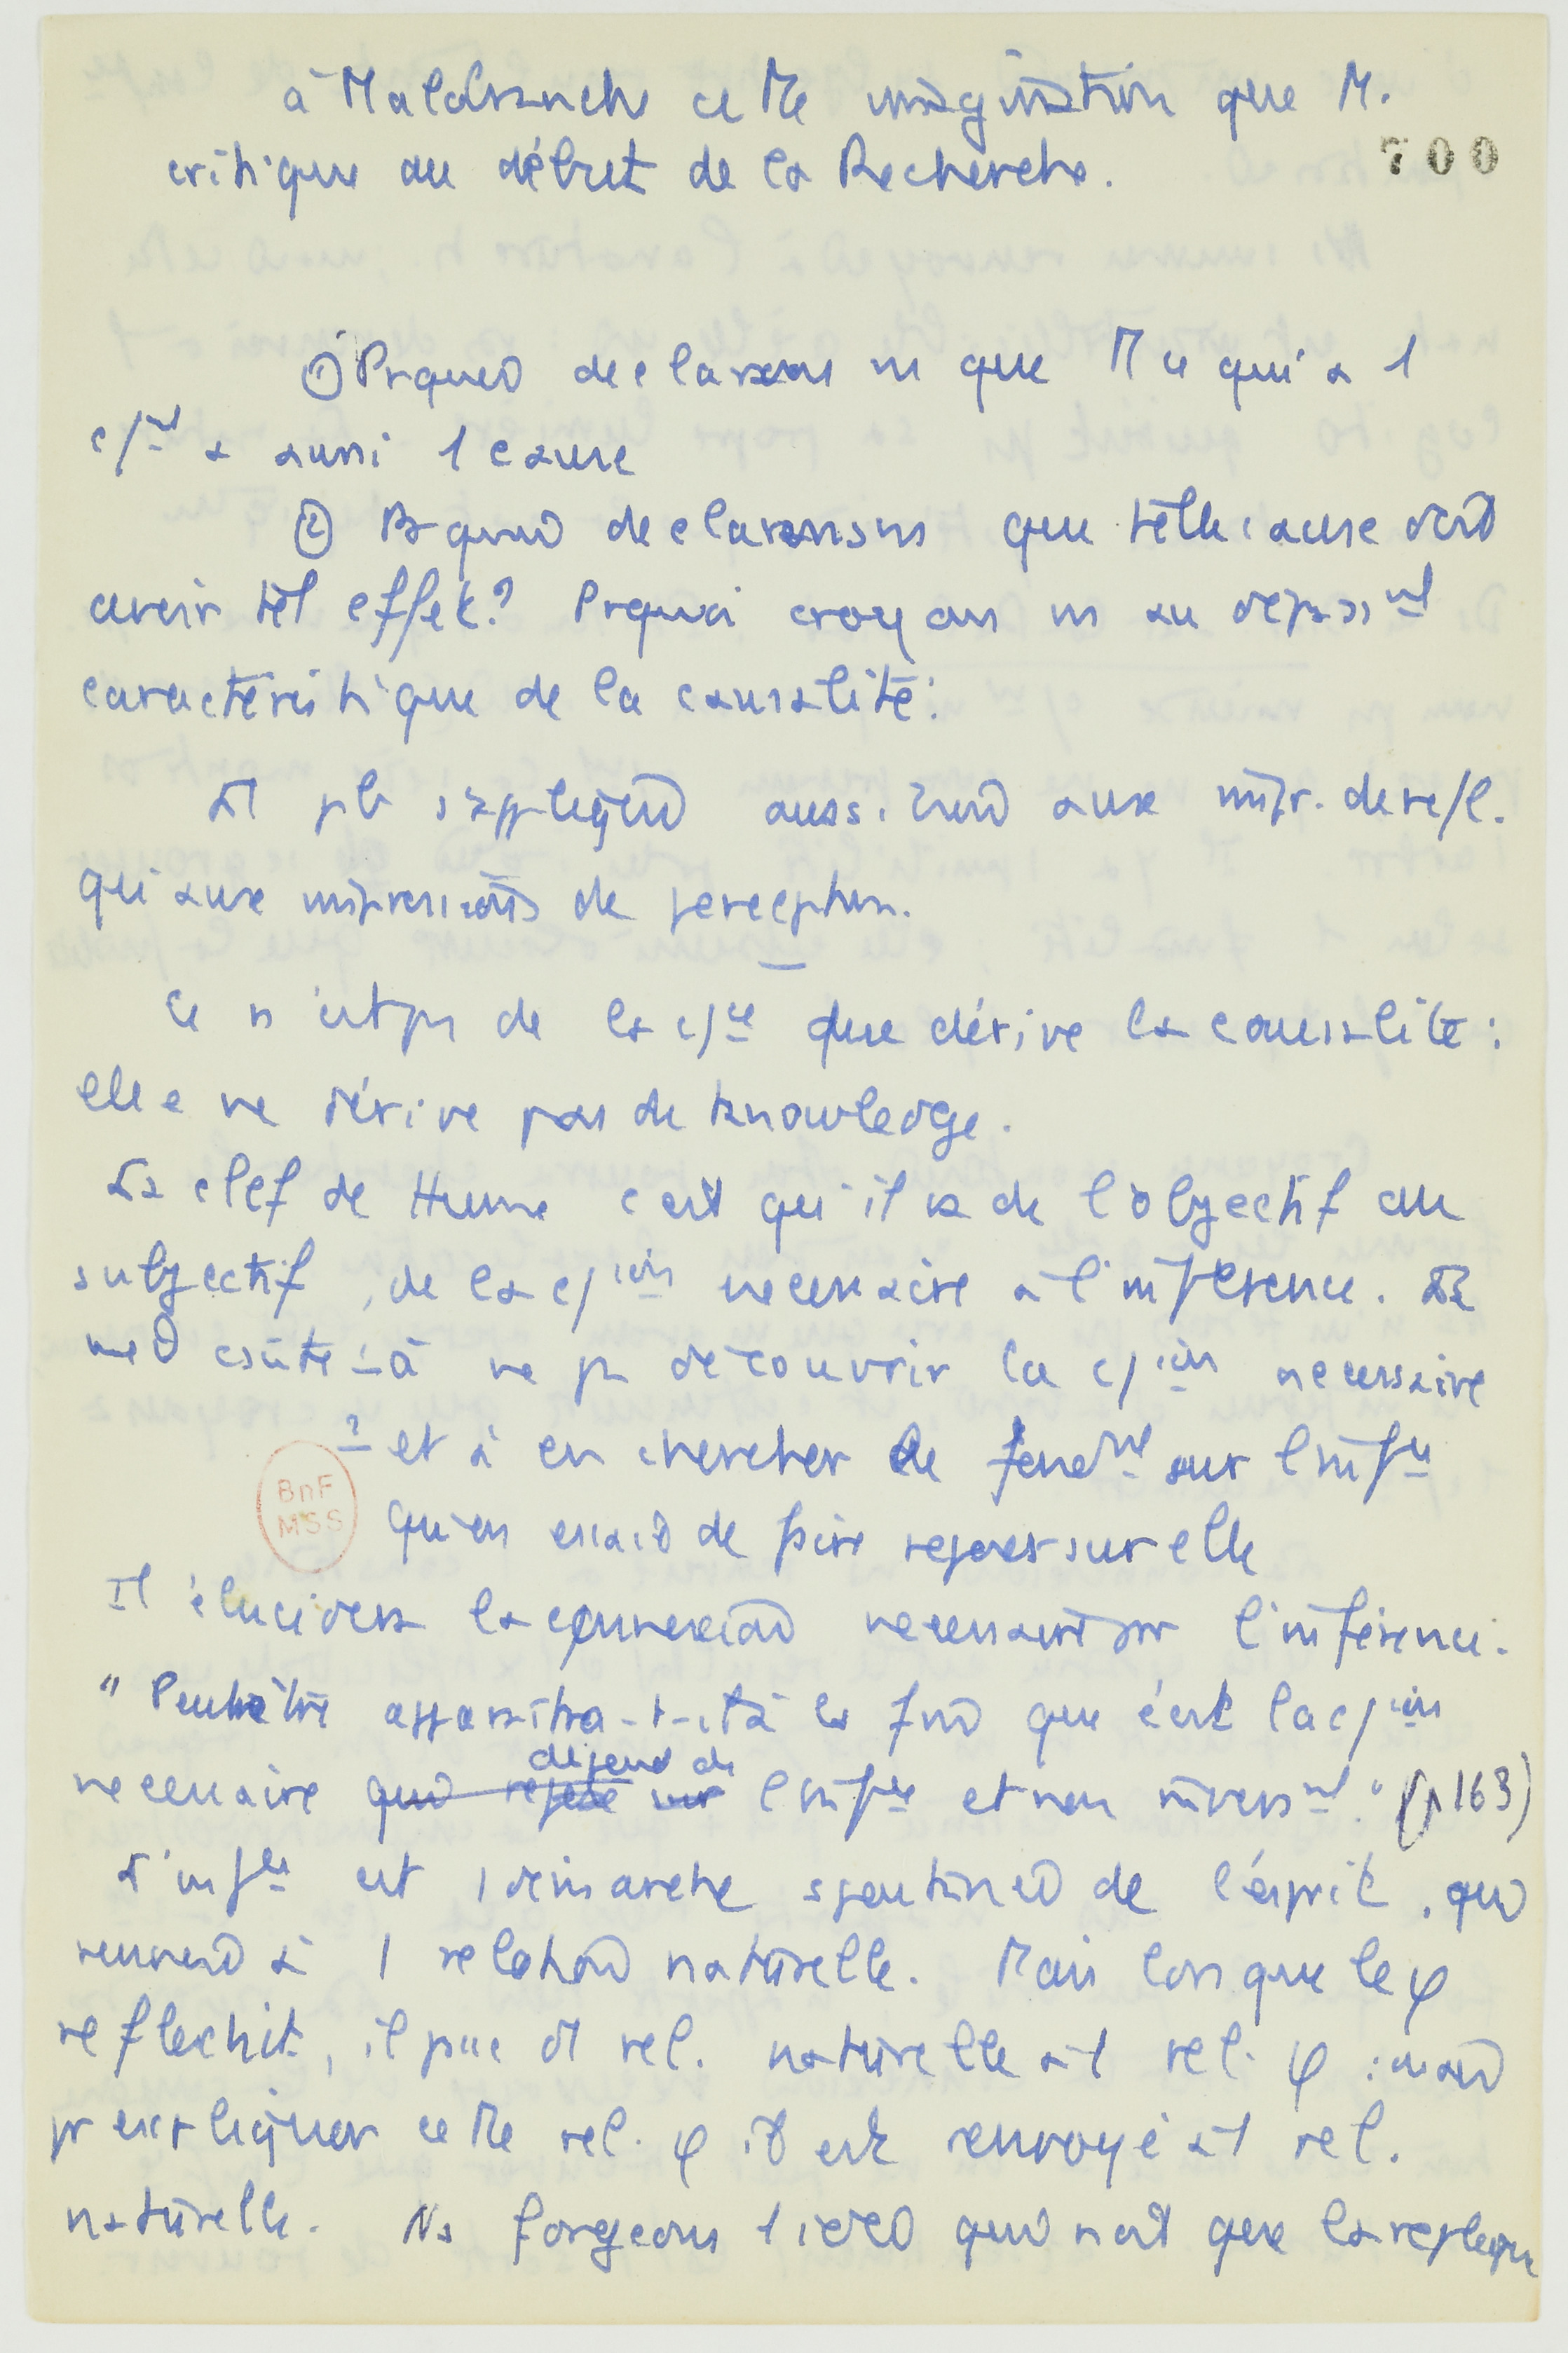 à Malebranche cette imagination que M.
critique au début de la Recherche.
700
① Prquoi declarons ns que Tt ce qui a 1
c/nt a aussi 1 cause
② Prquoi declarons ns que telle cause doit
avoir tel effet? Prquoi croyons ns au depasst
caractéristique de la causalité:
Le pb s'applique aussi bien aux impr. de refl.
qu'aux impressions de perception.
Ce n'est pas de la c/ce que dérive la causalité:
elle ne dérive pas de knowledge.
La clef de Hume c'est qu'il va de l'objectif au
subjectif, de la c/ion necessaire à l'inference. La
consiste-à ne ps découvrir la c/ion necessaire
? et à en chercher le fondnt sur l'infce
qu'on essaie de faire reposer sur elle
Il élucidera la connexion necessaire par l'inférence.
"Peut être apparaitra-t-il à la fin que c'est la c/ion
necessaire qui repose sur dépend de l'infce et non inverst." (p 163)
L'infce est 1 démarche spontanée de l'esprit, qui
renvoie à 1 relation naturelle. Mais lorsque le φ
reflechit, il passe de rel. naturelle à 1 rel. φ : mais
pr expliquer cette rel. φ il est renvoyé à 1 rel.
naturelle. Ns forgeons 1 idée qui n'est que la